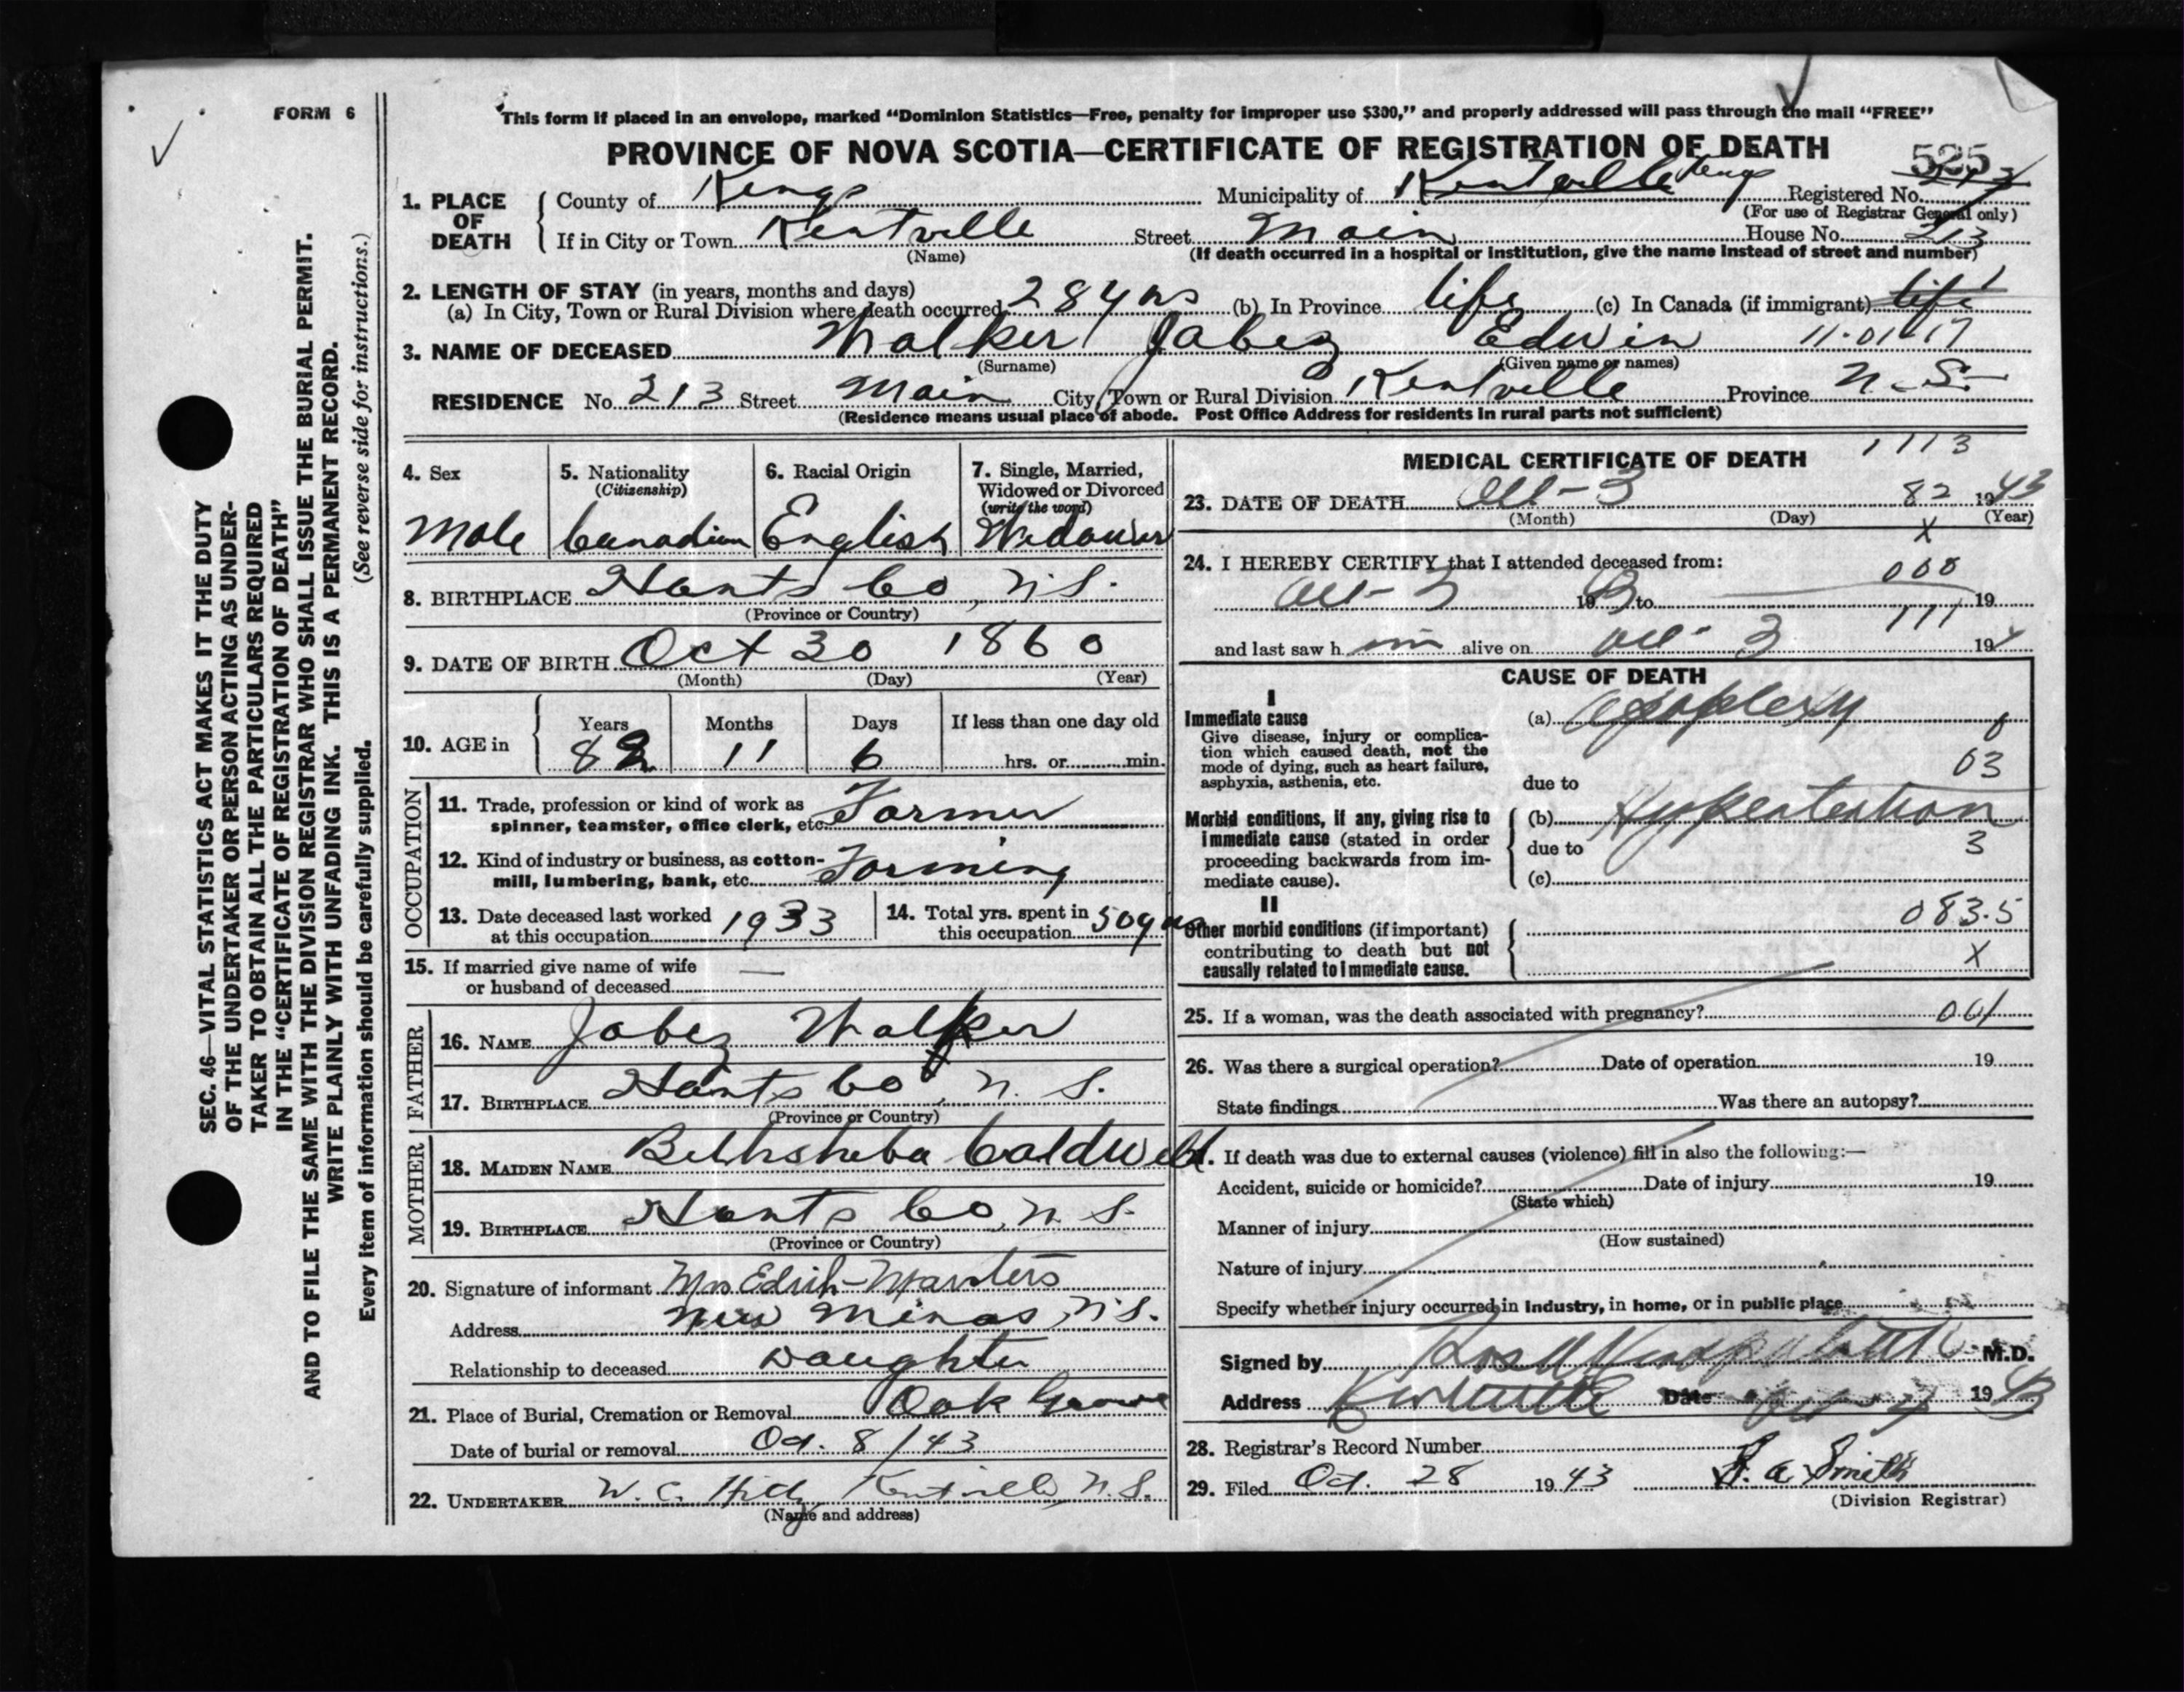 FORM 6
This form if placed in an envelope, marked “Dominion Statistics—Free, penalty for improper use $300,” and properly addressed will pass through the mail “FREE”
PROVINCE OF NOVA SCOTIA—CERTIFICATE OF REGISTRATION OF DEATH
525
1. PLACE OF DEATH County of Kings Municipality of Kentville Kings Registered No.
(For use of Registrar General only)
If in City or Town Kentville Street Main House No. 213
(Name) (If death occurred in a hospital or institution, give the name instead of street and number)
2. LENGTH OF STAY (in years, months and days)
(a) In City, Town or Rural Division where death occurred 28 yrs (b) In Province life (c) In Canada (if immigrant) life
3. NAME OF DECEASED Walker Jabez Edwin 11-01-17
(Surname) (Given name or names)
RESIDENCE No. 213 Street Main City, Town or Rural Division Kentville Province N.S.
(Residence means usual place of abode. Post Office Address for residents in rural parts not sufficient)
4. Sex
Male
5. Nationality
(Citizenship)
Canadian
6. Racial Origin
English
7. Single, Married,
Widowed or Divorced
(write the word)
Widower
8. BIRTHPLACE Hants Co, N.S.
(Province or Country)
9. DATE OF BIRTH Oct 30 1860
(Month) (Day) (Year)
10. AGE in Years Months Days If less than one day old
82 11 6 hrs. or min.
OCCUPATION
11. Trade, profession or kind of work as
spinner, teamster, office clerk, etc. Farmer
12. Kind of industry or business, as cotton-
mill, lumbering, bank, etc. Farming
13. Date deceased last worked
at this occupation 1933
14. Total yrs. spent in
this occupation 50 yrs
15. If married give name of wife
or husband of deceased —
FATHER
16. NAME Jabez Walker
17. BIRTHPLACE Hants Co, N.S.
(Province or Country)
MOTHER
18. MAIDEN NAME Bethsheba Caldwell
19. BIRTHPLACE Hants Co, N.S.
(Province or Country)
20. Signature of informant Mrs Edith Marsters
Address New Minas, N.S.
Relationship to deceased Daughter
21. Place of Burial, Cremation or Removal Oak Grove
Date of burial or removal Oct. 8/43
22. UNDERTAKER W. C. Kentville, N.S.
(Name and address)
1113
MEDICAL CERTIFICATE OF DEATH
23. DATE OF DEATH Oct - 3 82 1943
(Month) (Day) (Year)
X
24. I HEREBY CERTIFY that I attended deceased from:
000
Oct - 3 19 to 19
111
and last saw him alive on Oct - 3 194
CAUSE OF DEATH
I
Immediate cause
Give disease, injury or complica-
tion which caused death, not the
mode of dying, such as heart failure,
asphyxia, asthenia, etc.
(a) Apoplexy
03
due to
Morbid conditions, if any, giving rise to
immediate cause (stated in order
proceeding backwards from im-
mediate cause).
(b) Hypertention
due to 3
(c)
II
083.5
Other morbid conditions (if important)
contributing to death but not
causally related to immediate cause.
X
25. If a woman, was the death associated with pregnancy? 001
26. Was there a surgical operation? Date of operation 19
State findings Was there an autopsy?
If death was due to external causes (violence) fill in also the following:—
Accident, suicide or homicide? Date of injury 19
(State which)
Manner of injury
(How sustained)
Nature of injury
Specify whether injury occurred in industry, in home, or in public place
Signed by M.D.
Address Kentville Date 1943
28. Registrar's Record Number
29. Filed Oct. 28 1943 Smith
(Division Registrar)
SEC. 46—VITAL STATISTICS ACT MAKES IT THE DUTY
OF THE UNDERTAKER OR PERSON ACTING AS UNDER-
TAKER TO OBTAIN ALL THE PARTICULARS REQUIRED
IN THE “CERTIFICATE OF REGISTRATION OF DEATH”
AND TO FILE THE SAME WITH THE DIVISION REGISTRAR WHO SHALL ISSUE THE BURIAL PERMIT.
WRITE PLAINLY WITH UNFADING INK. THIS IS A PERMANENT RECORD.
Every item of information should be carefully supplied. (See reverse side for instructions.)